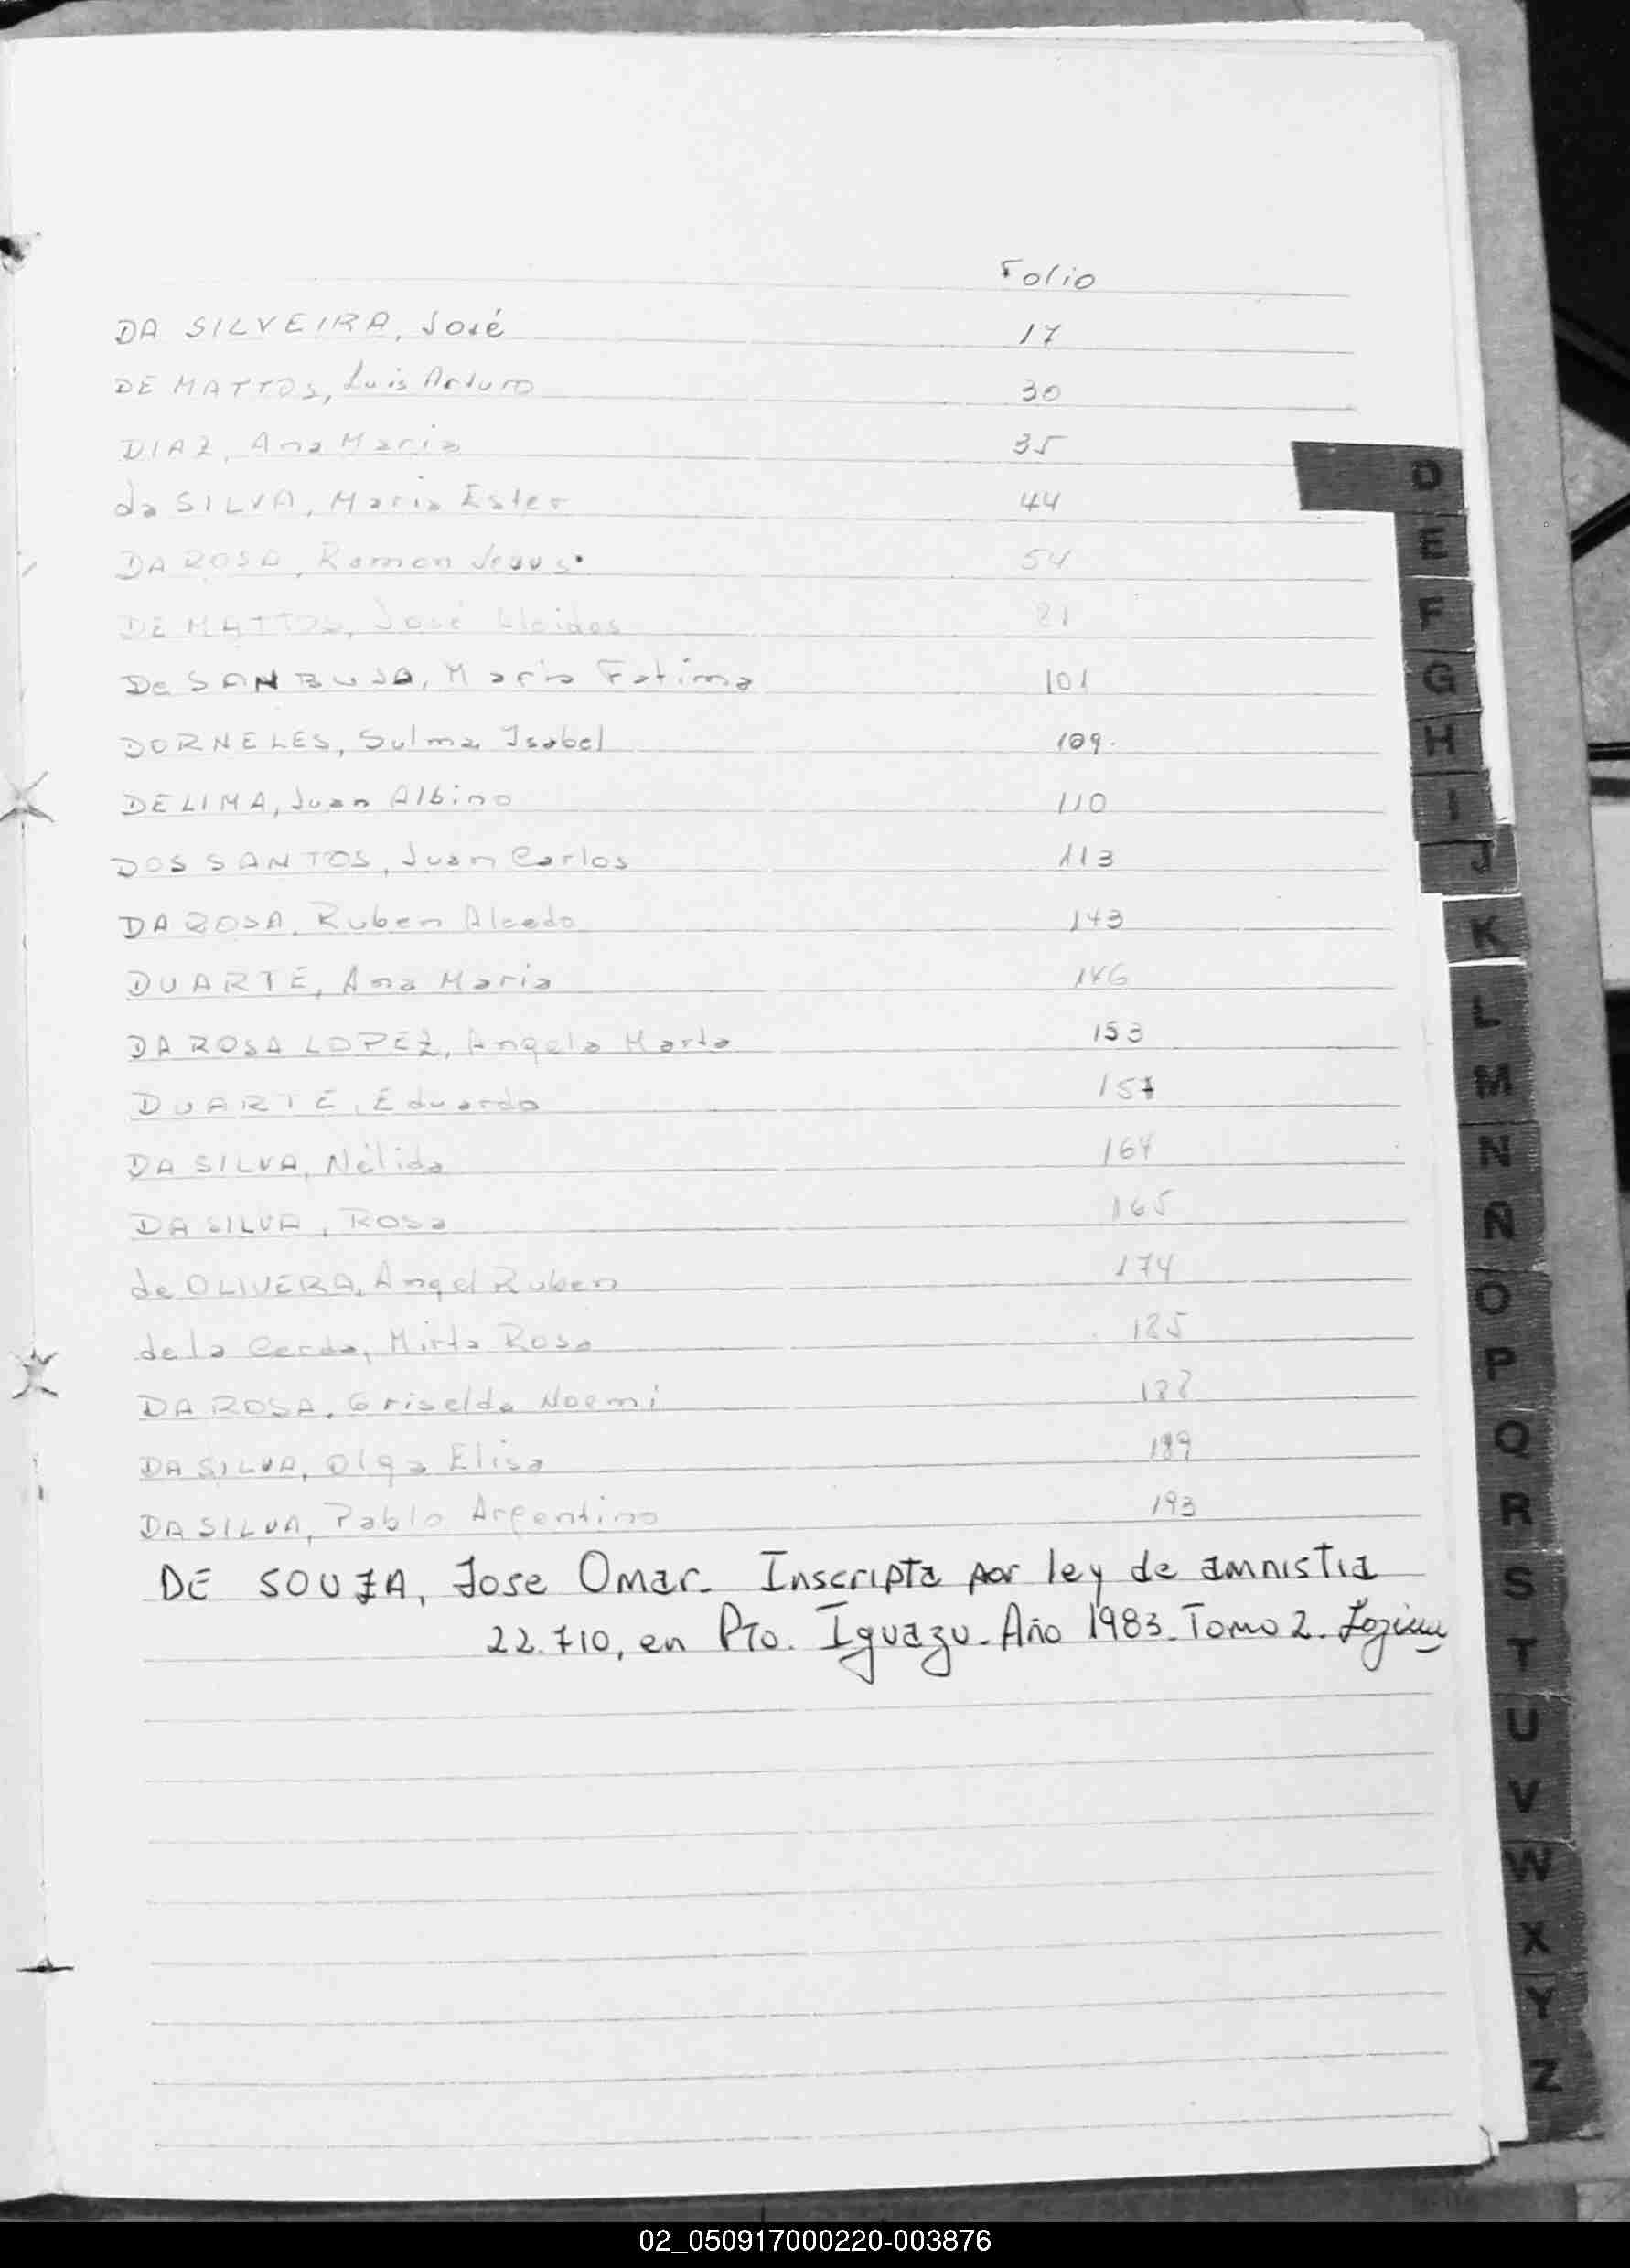 Folio
DA SILVEIRA, José 17
DE MATTOS, Luis Arturo 30
DIAZ, Ana Maria 35
da SILVA, Maria Ester 44
DA ROSA, Ramon Jesus 54
DE MATTOS, José
De SANBUJA, Maria Fatima 101
DORNELES, Sulma Isabel 109
DE LIMA, Juan Albino 110
DOS SANTOS, Juan Carlos 113
DA ROSA, Ruben Alcedo 143
DUARTE, Ana Maria 146
DA ROSA LOPEZ, Angela Marta 153
DUARTE, Eduardo 157
DA SILVA, Nélida 164
DA SILVA, ROSa 165
de OLIVERA, Angel Ruben 174
de la Cerda, Mirta Rosa 185
DA ROSA, Griselda Noemi 188
DA SILVA, Olga Elisa 189
DA SILVA, Pablo Argentino 193
DE SOUZA, Jose Omar. Inscripta por ley de amnistia
22.710, en Pto. Iguazu. Año 1983. Tomo 2.
D
E
F
G
H
I
J
K
L
M
N
Ñ
O
P
Q
R
S
T
U
V
W
X
Y
Z
02_050917000220-003876